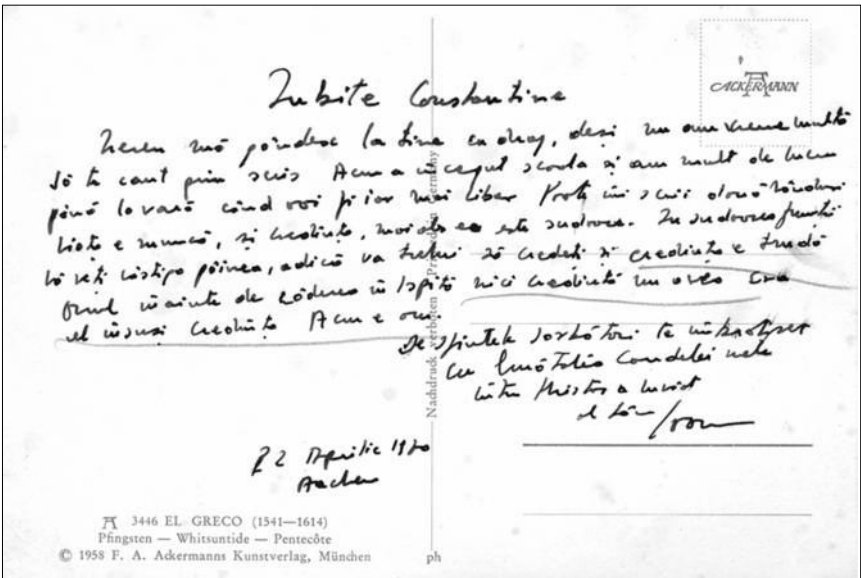 ACKERMANN
Iubite Constantine
Mereu mă gîndesc la tine cu drag, desi nu am vreme multă
să te caut prin scris Acum a inceput scoala și am mult de lucru
pînă la vară cînd voi fi iar mai liber Poate imi scrii două rînduri
Viața e muncă, și credința, mai ales ea este sudoare. In sudoarea frunții
vă veți cîstiga pîinea, adică va trebui să credeți si credința e trudă
Omul inainte de căderea in Ispită nici credință nu avea Era
el insusi credință Acum e om.
De sfintele sărbători te imbrațișez
cu Candelei mele
intru Hristos a inviat
al tău Ioan
22 Aprilie 1970
Aachen
Nachdruck verboten — Printed in Germany
3446 EL GRECO (1541—1614)
Pfingsten — Whitsuntide — Pentecôte
© 1958 F. A. Ackermanns Kunstverlag, München
ph